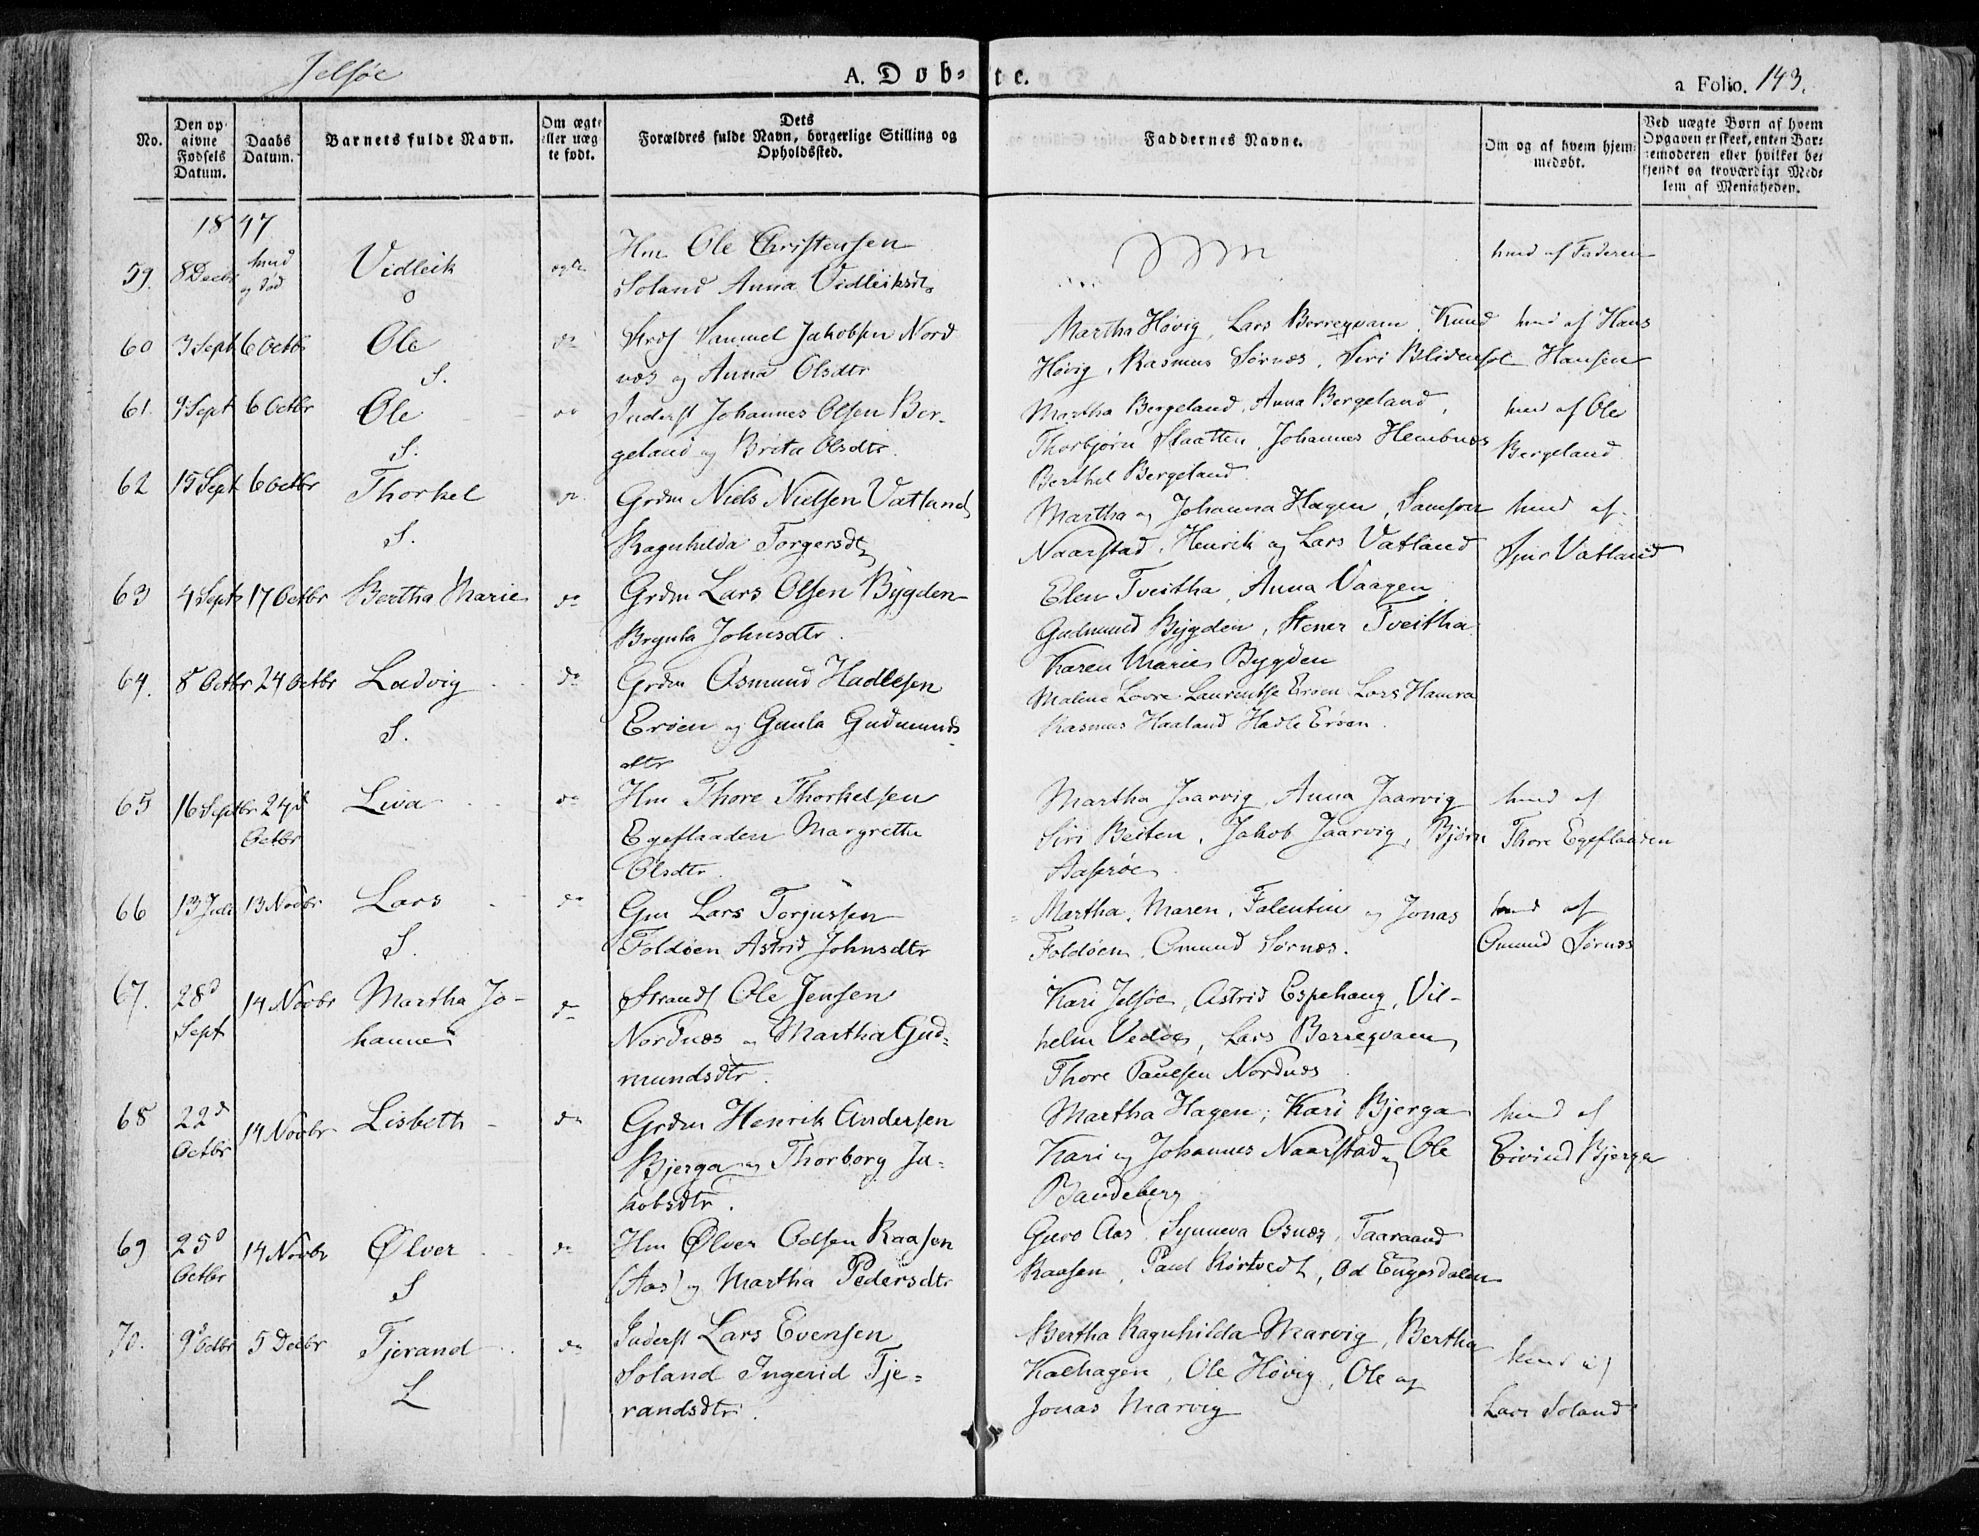 Jelsøe
A. Døb-te.
a Folio. 143.
No.
Den opgivne Fødsels Datum.
Daabs Datum.
Barnets fulde Navn.
Om ægte eller uægte født.
Dets Forældres fulde Navn, borgerlige Stilling og Opholdssted.
Faddernes Navne.
Om og af hvem hjemmedøbt.
Ved uægte Børn af hvem Opgaven er skeet, enten Barnemoderen eller hvilket bekjendt og troværdigt Medlem af Menigheden.
1847
59. 8 Decbr hmd og død Vidleik ægte Hm Ole Christensen hmd af Faderen
Soland Anna Vidleiksdtr
60 3 Sept 6 Octbr Ole do Strds Samuel Jakobsen Nord Martha Høvig, Lars Berreqvam, Knud hmd af Hans
S. næs og Anna Olsdtr Høvig, Rasmus Sørnæs, Siri Blidensol Hansen
61. 9 Sept 6 Octbr Ole do Inderst Johannes Olsen Ber- Martha Bergeland, Anna Bergeland, hmd af Ole
S. geland og Brita Olsdtr. Thorbjørn Slaatten, Johannes Hembnæs Bergeland
Berthel Bergeland.
62 15 Sept 6 Octbr Thorkel do Grdm Niels Nielsen Vatland Martha og Johanna Hagen, Samson hmd af
S. Ragnhilda Torgersdtr Naarstad, Henrik og Lars Vatland Sjur Vatland
63 4 Septr 17 Octbr Bertha Marie do Grdm Lars Olsen Bygden Elen Tveitha, Anna Vaagen
Brynla Johnsdtr. Gudmund Bygden, Stener Tveitha
Karen Marie Bygden
64. 8 Octbr 24 Octbr Ludvig do Grdm Osmund Hadlesen Malene Lovre. Laurentse Erøen Lars Hamra
S. Erøen og Gunla Gudmunds- Rasmus Haaland Hadle Erøen.
dtr
65 16 Septbr 24d Liva do Hm Thore Thorkelsen Martha Jaarvig, Anna Jaarvig hmd af
Octbr Egeflaaden Margrethe Siri Beiten, Jakob Jaarvig, Bjørn Thore Egeflaaden
Olsdtr. Aaserøe
66 13 Juli 13 Novbr Lars do Gm Lars Torjussen Martha, Maren, Falentin og Jonas hmd af
S. Foldøen Astrid Johnsdtr Foldøen, Omund Sørnæs. Omund Sørnæs
67. 28d 14 Novbr Martha Jo- do Strands Ole Jensen Kari Jelsøe, Astrid Espehaug, Vil-
Sept hanne Nordnæs og Martha Gud- helm Vedøe, Lars Berreqvam
mundsdtr. Thore Paulsen Nordnæs
68 22d 14 Novbr Lisbeth do Grdm Henrik Andersen Martha Hagen, Kari Bjerga hmd af
Octbr Bjerga og Thorborg Ja- Kari og Johannes Naarstad og Ole Eivind Bjerga
kobsdtr. Bandeberg
69 25d 14 Novbr Ølver do Hm Ølver Odsen Raasen Guro Aas, Synneva Osnæs, Taaraand
Octbr S (Aas) og Martha Pedersdtr Raasen, Paul Rørtvedt, Od Engesdalen
70. 9d Octbr 5 Decbr Tjerand do Inderst Lars Evensen Bertha Ragnhilda Marvig, Bertha hmd af
L Soland Ingerid Tje- Kalhagen, Ole Høvig, Ole og Lars Soland
randsdtr. Jonas Marvig